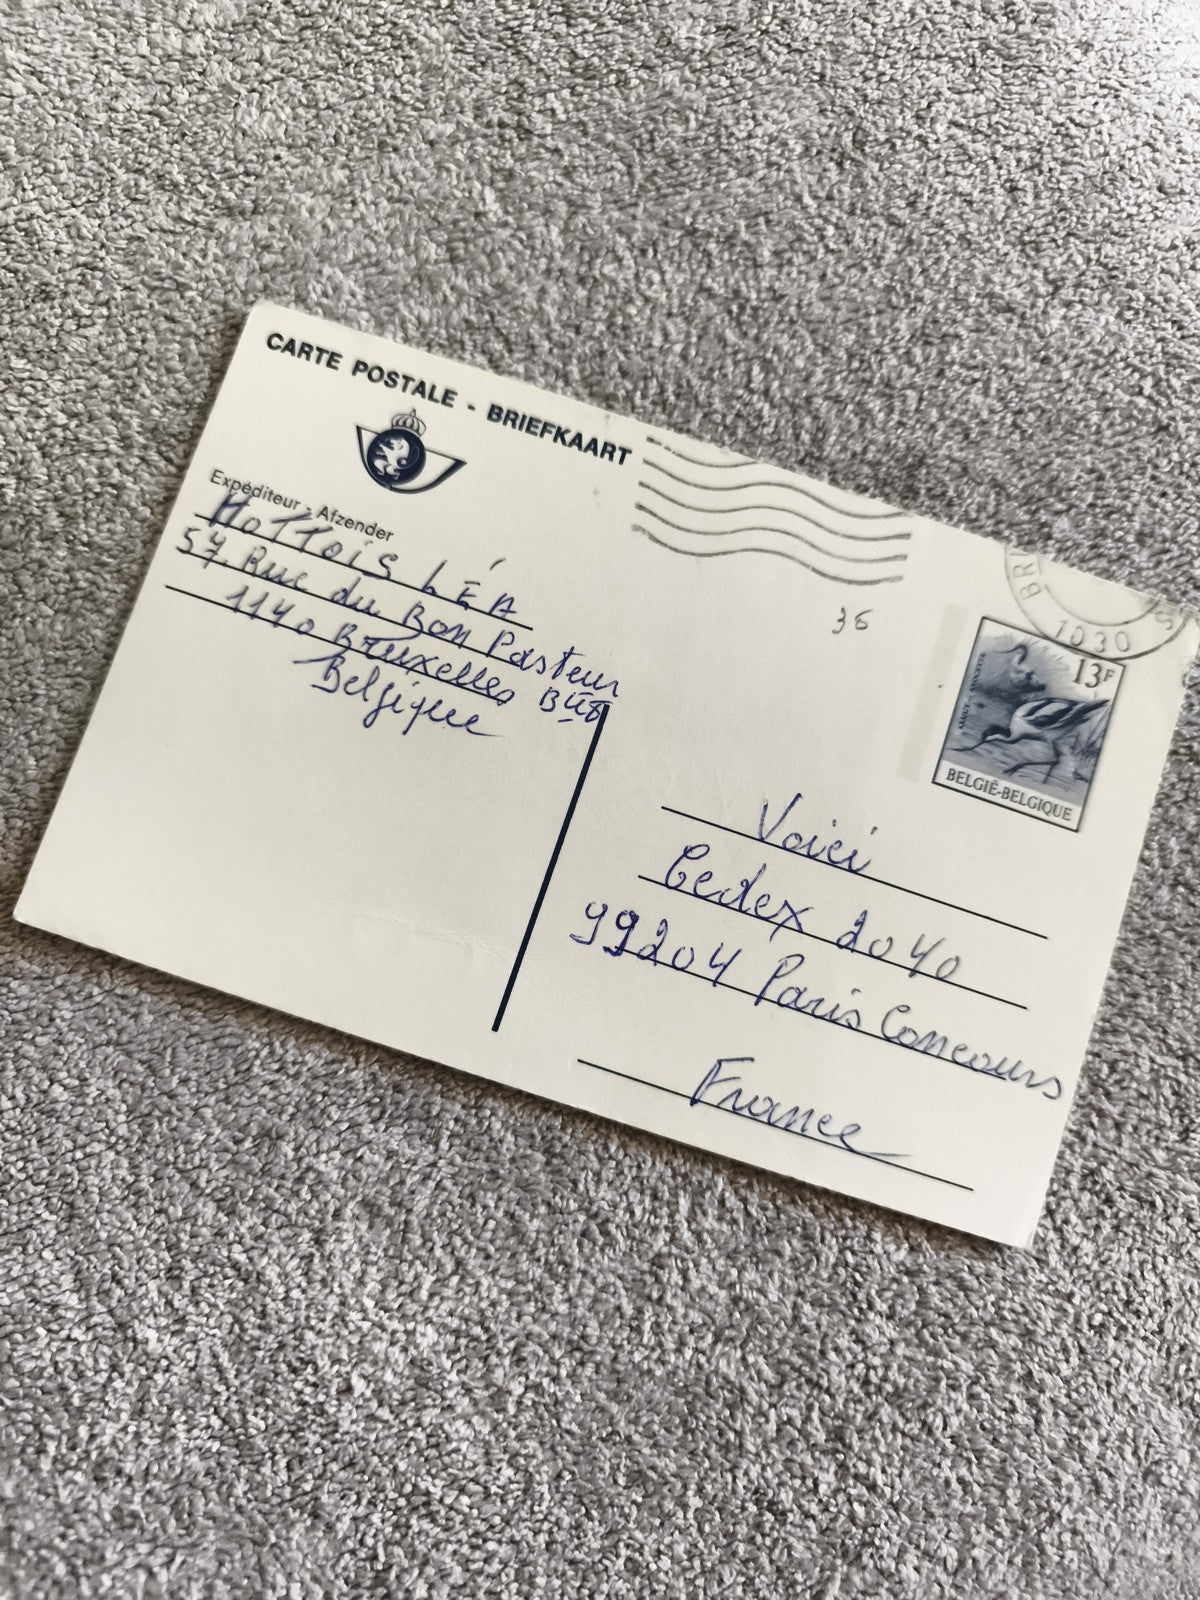 CARTE POSTALE - BRIEFKAART
Expéditeur - Afzender
Hottois LÉA
57. Rue du Bon Pasteur
1140 Bruxelles
Belgique
36
1030
13F
BELGIË-BELGIQUE
Voici
Cedex 2040
99204 Paris Concours
France